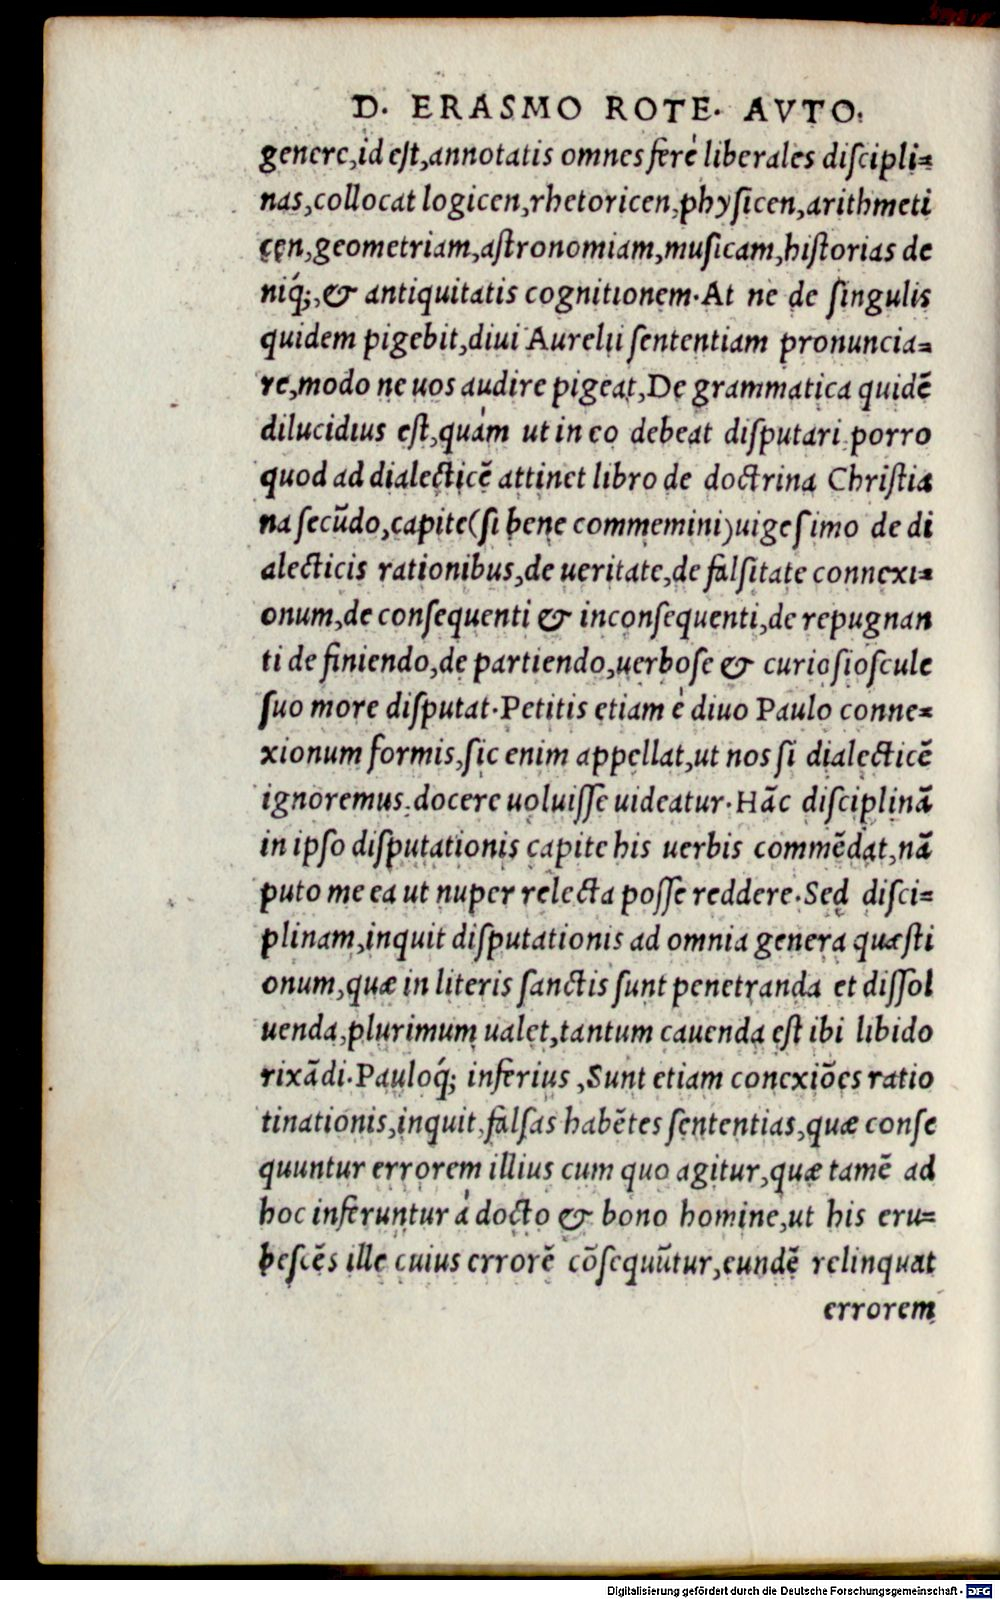 D. ERASMO ROTE. AVTO.
genere,id eſt,annotatis omnes ferè liberales diſcipli=
nas,collocat logicen,rhetoricen,phyſicen,arithmeti
cen,geometriam,aſtronomiam,muſicam,hiſtorias de
niq́;,& antiquitatis cognitionem.At ne de ſingulis
quidem pigebit,diui Aurelii ſententiam pronuncia=
re,modo ne uos audire pigeat,De grammatica quidē
dilucidius eſt,quàm ut in eo debeat diſputari.porro
quod ad dialecticē attinet libro de doctrina Chriſtia
na ſecūdo,capite(ſi bene commemini)uigeſimo de di
alecticis rationibus,de ueritate,de falſitate connexi=
onum,de conſequenti & inconſequenti,de repugnan
ti de finiendo,de partiendo,uerboſe & curioſioſcule
ſuo more diſputat.Petitis etiam è diuo Paulo conne=
xionum formis,ſic enim appellat,ut nos ſi dialecticē
ignoremus.docere uoluiſſe uideatur.Hāc diſciplinā
in ipſo diſputationis capite his uerbis commēdat,nā
puto me ea ut nuper relecta poſſe reddere.Sed diſci=
plinam,inquit diſputationis ad omnia genera quæſti
onum,quæ in literis ſanctis ſunt penetranda et diſſol
uenda,plurimum ualet,tantum cauenda eſt ibi libido
rixādi.Pauloq́; inferius ,Sunt etiam conexiōes ratio
tinationis,inquit,falſas habētes ſententias,quæ conſe
quuntur errorem illius cum quo agitur,quæ tamē ad
hoc inferuntur à docto & bono homine,ut his eru=
beſcēs ille cuius errorē cōſequūtur,eundē relinquat
errorem
Digitalisierung gefördert durch die Deutsche Forschungsgemeinschaft - DFG